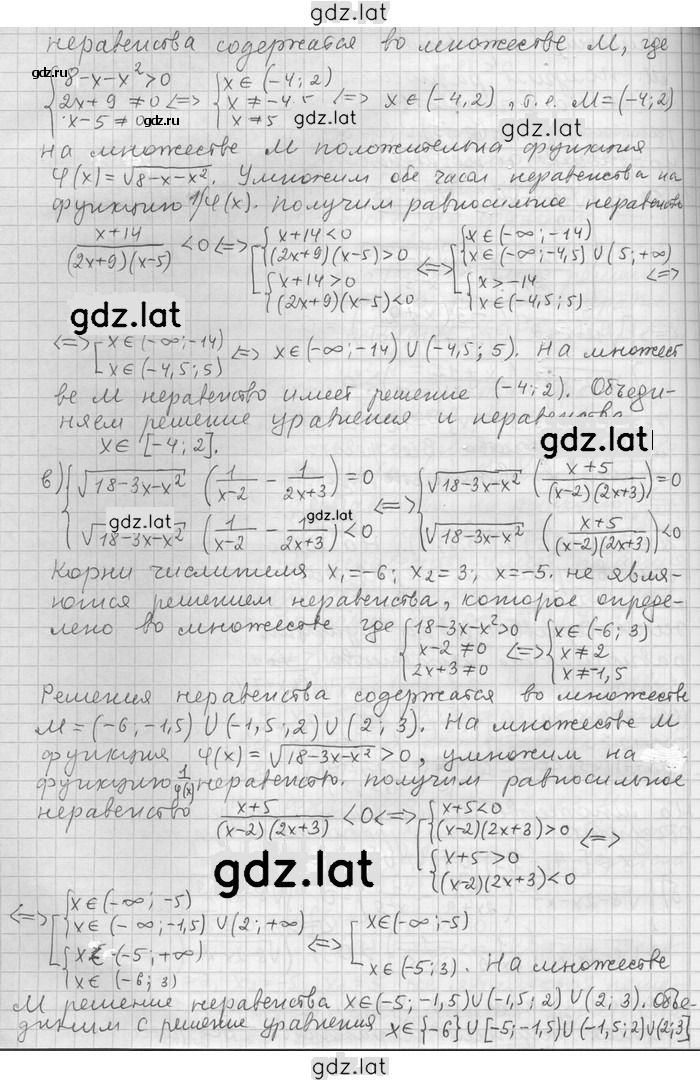 gdz.lat
неравенства содержатся во множестве M, где
gdz.ru
{8-x-x²>0 {x∈(-4;2)
{2x+9≠0 <=> {x≠-4.5 <=> x∈(-4,2), т.е. M=(-4;2)
{x-5≠0 {x≠5
gdz.lat gdz.lat gdz.lat
на множестве M положительна функция
φ(x)=√8-x-x². Умножим обе части неравенства на
функцию 1/φ(x). получим равносильное неравенств
x+14/(2x+9)(x-5) <0 <=> [{x+14<0 {(2x+9)(x-5)>0 {x+14>0 {(2x+9)(x-5)<0 <=> [{x∈(-∞;-14) {x∈(-∞;-4,5)∪(5;+∞) {x>-14 {x∈(-4,5;5) <=>
gdz.lat
<=> [x∈(-∞;-14) x∈(-4,5;5) <=> x∈(-∞;-14)∪(-4,5;5). На множест
ве M неравенство имеет решение (-4;2). Объеди-
няем решение уравнения и неравенства
x∈[-4;2].
gdz.lat
в) {√18-3x-x² (1/x-2 - 1/2x+3)=0 {√18-3x-x² (x+5/(x-2)(2x+3))=0
<=>
{√18-3x-x² (1/x-2 - 1/2x+3)<0 {√18-3x-x² (x+5/(x-2)(2x+3))<0
gdz.lat gdz.lat
Корни числителя x₁=-6; x₂=3; x=-5. не явля-
ются решением неравенства, которое опреде-
лено во множестве где {18-3x-x²>0 {x-2≠0 {2x+3≠0 <=> {x∈(-6;3) {x≠2 {x≠-1,5
Решения неравенства содержатся во множестве
M=(-6,-1,5)∪(-1,5;2)∪(2;3). На множестве M
функция φ(x)=√18-3x-x²>0, умножим на
функцию 1/φ(x) неравенство. получим равносильное
неравенство x+5/(x-2)(2x+3) <0 <=> [{x+5<0 {(x-2)(2x+3)>0 {x+5>0 {(x-2)(2x+3)<0 <=>
gdz.lat
<=> [{x∈(-∞;-5) {x∈(-∞;-1,5)∪(2;+∞) {x∈(-5;+∞) {x∈(-6;3) <=> [x∈(-∞;-5) x∈(-5;3). На множестве
M решение неравенства x∈(-5;-1,5)∪(-1,5;2)∪(2;3). Объе-
диним с решение уравнения x∈{-6}∪[-5;-1,5)∪(-1,5;2)∪(2;3]
gdz.lat